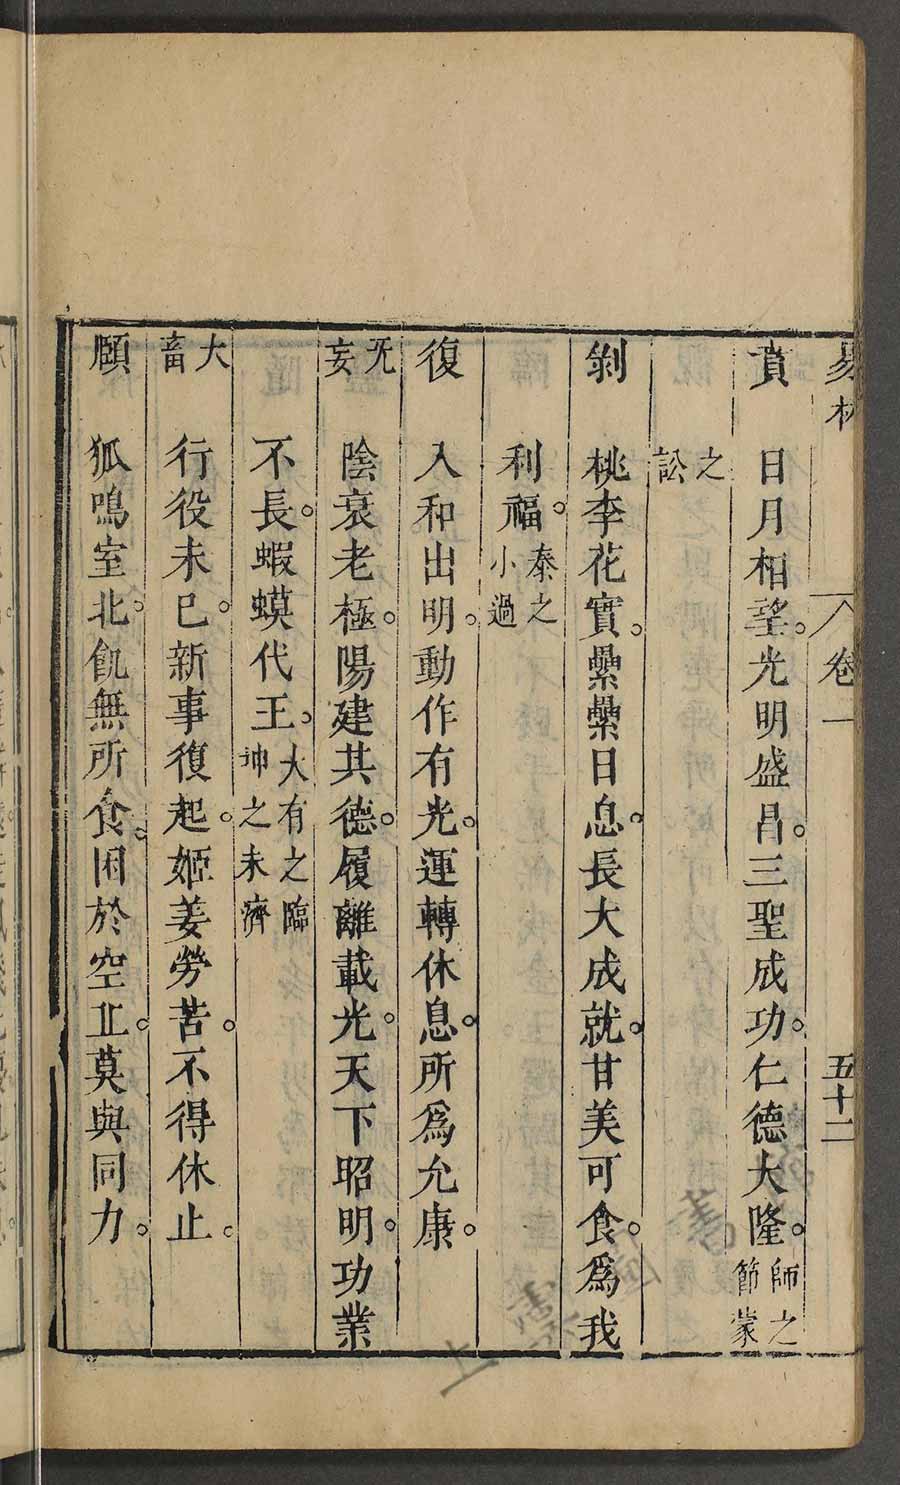 易林 卷一 五十二
賁 日月相望。光明盛昌。三聖成功。仁德大隆。師之節蒙
之訟
剝 桃李花實。纍纍日息。長大成就。甘美可食。爲我
利福。泰之小過
復 入和出明。動作有光。運轉休息。所爲允康。
无妄 陰衰老極。陽建其德。履離載光。天下昭明。功業
不長。蝦蟆代王。大有之臨坤之未濟
大畜 行役未已。新事復起。姬姜勞苦。不得休止。
頤 狐鳴室北。飢無所食。困於空丘。莫與同力。